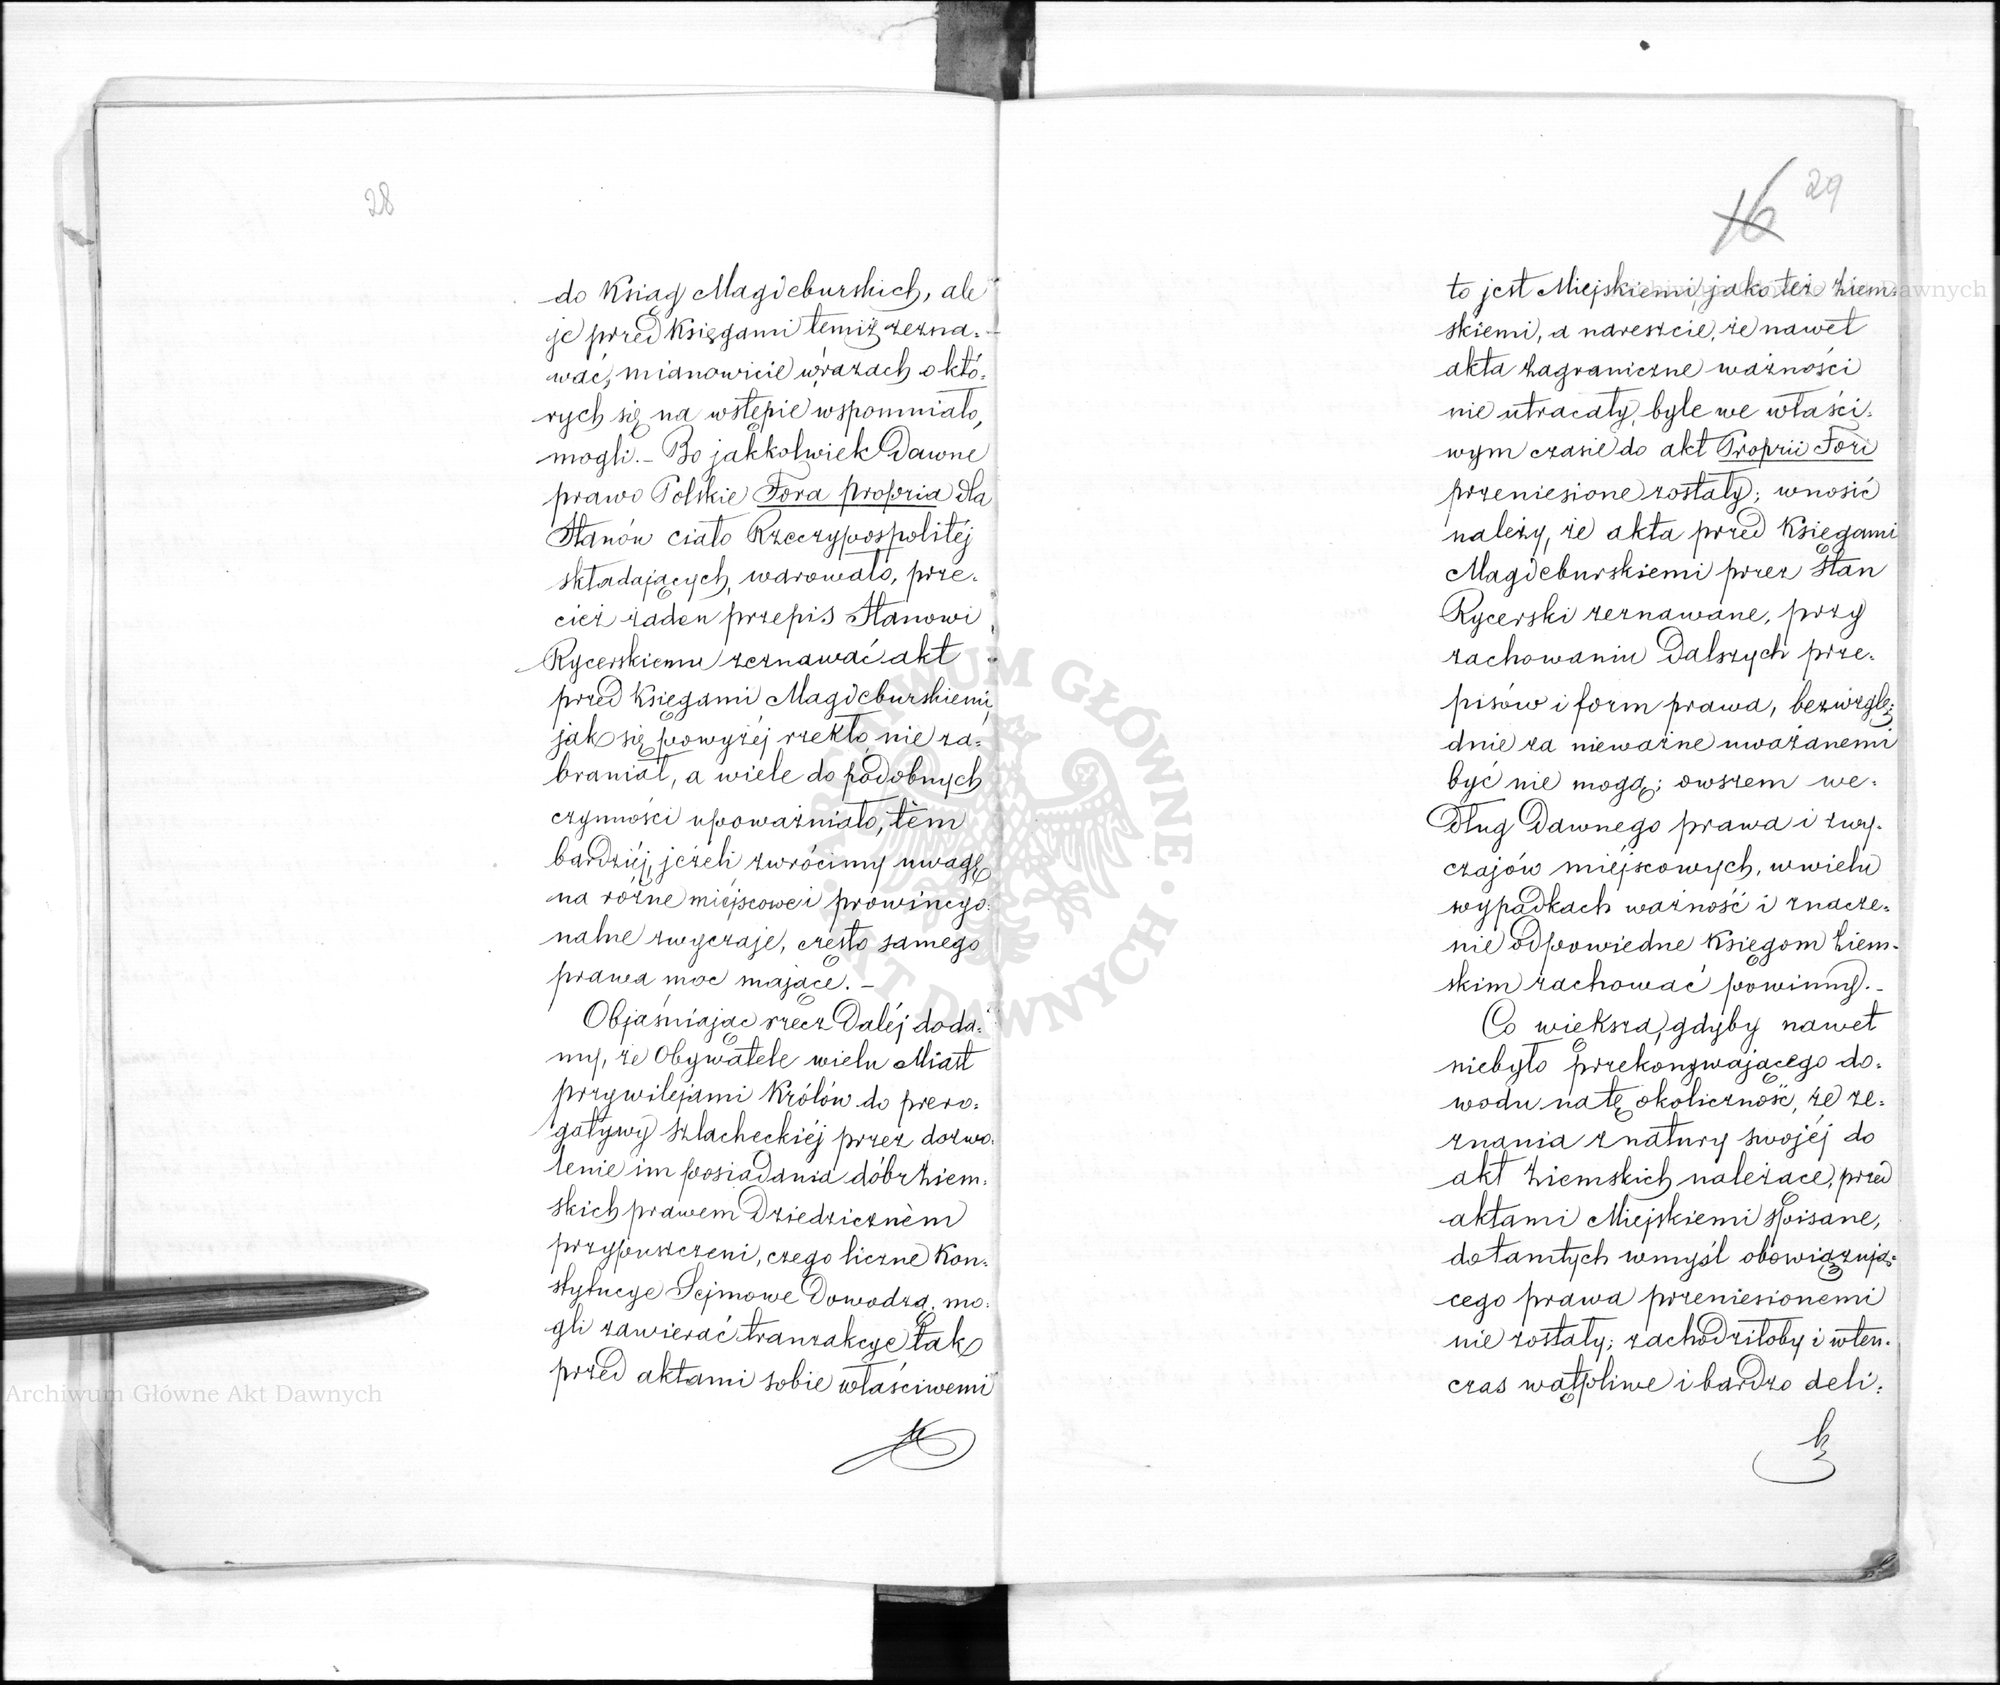 28
do Ksiąg Magdeburskich, ale
je przed Księgami temiż zezna-
wać, mianowicie w razach o któ-
rych się na wstępie wspomniało,
mogli. – Bo jakkolwiek Dawne
prawo Polskie Fora propria dla
Stanów ciało Rzeczypospolitéj
składających, warowało, prze-
cież żaden przepis Stanowi
Rycerskiemu zeznawać akt
przed Księgami Magdeburskiemi,
jak się powyżéj rzekło, nie za-
braniał, a wiele do podobnych
czynności upoważniało, tém
bardziéj, jeżeli zwrócimy uwagę
na różne miejscowe i prowincyo-
nalne zwyczaje, często samego
prawa moc mające. –
Objaśniając rzecz Daléj doda-
my, że Obywatele wielu Miast
przywilejami Królów do prero-
gatywy szlacheckiéj przez dozwo-
lenie im posiadania dóbr Ziem-
skich prawem Dziedziczném
przypuszczeni, czego liczne Kon-
stytucye Sejmowe Dowodzą, mo-
gli zawierać tranzakcye tak
przed aktami sobie właściwemi
16 29
to jest Miejskiemi, jako też Ziem-
skiemi, a nareszcie, że nawet
akta zagraniczne ważności
nie utracały, byle we właści-
wym czasie do akt Proprii Fori
przeniesione zostały; wnosić
należy, że akta przed Księgami
Magdeburskiemi przez Stan
Rycerski zeznawane, przy
zachowaniu Dalszych prze-
pisów i form prawa, bezwzglę-
dnie za nieważne uważanemi
być nie mogą; owszem we-
Dług Dawnego prawa i zwy-
czajów miejscowych, w wielu
wypadkach ważność i znacze-
nie odpowiedne Księgom Ziem-
skim zachować powinny. –
Co większa, gdyby nawet
niebyło przekonywającego do-
wodu na tę okoliczność, że ze-
znania z natury swojéj do
akt Ziemskich należące, przed
aktami Miejskiemi spisane,
do tamtych w myśl obowiązują-
cego prawa przeniesionemi
nie zostały; zachodziłoby i wten-
czas wątpliwe i bardzo deli-
Archiwum Główne Akt Dawnych
ARCHIWUM GŁÓWNE AKT DAWNYCH